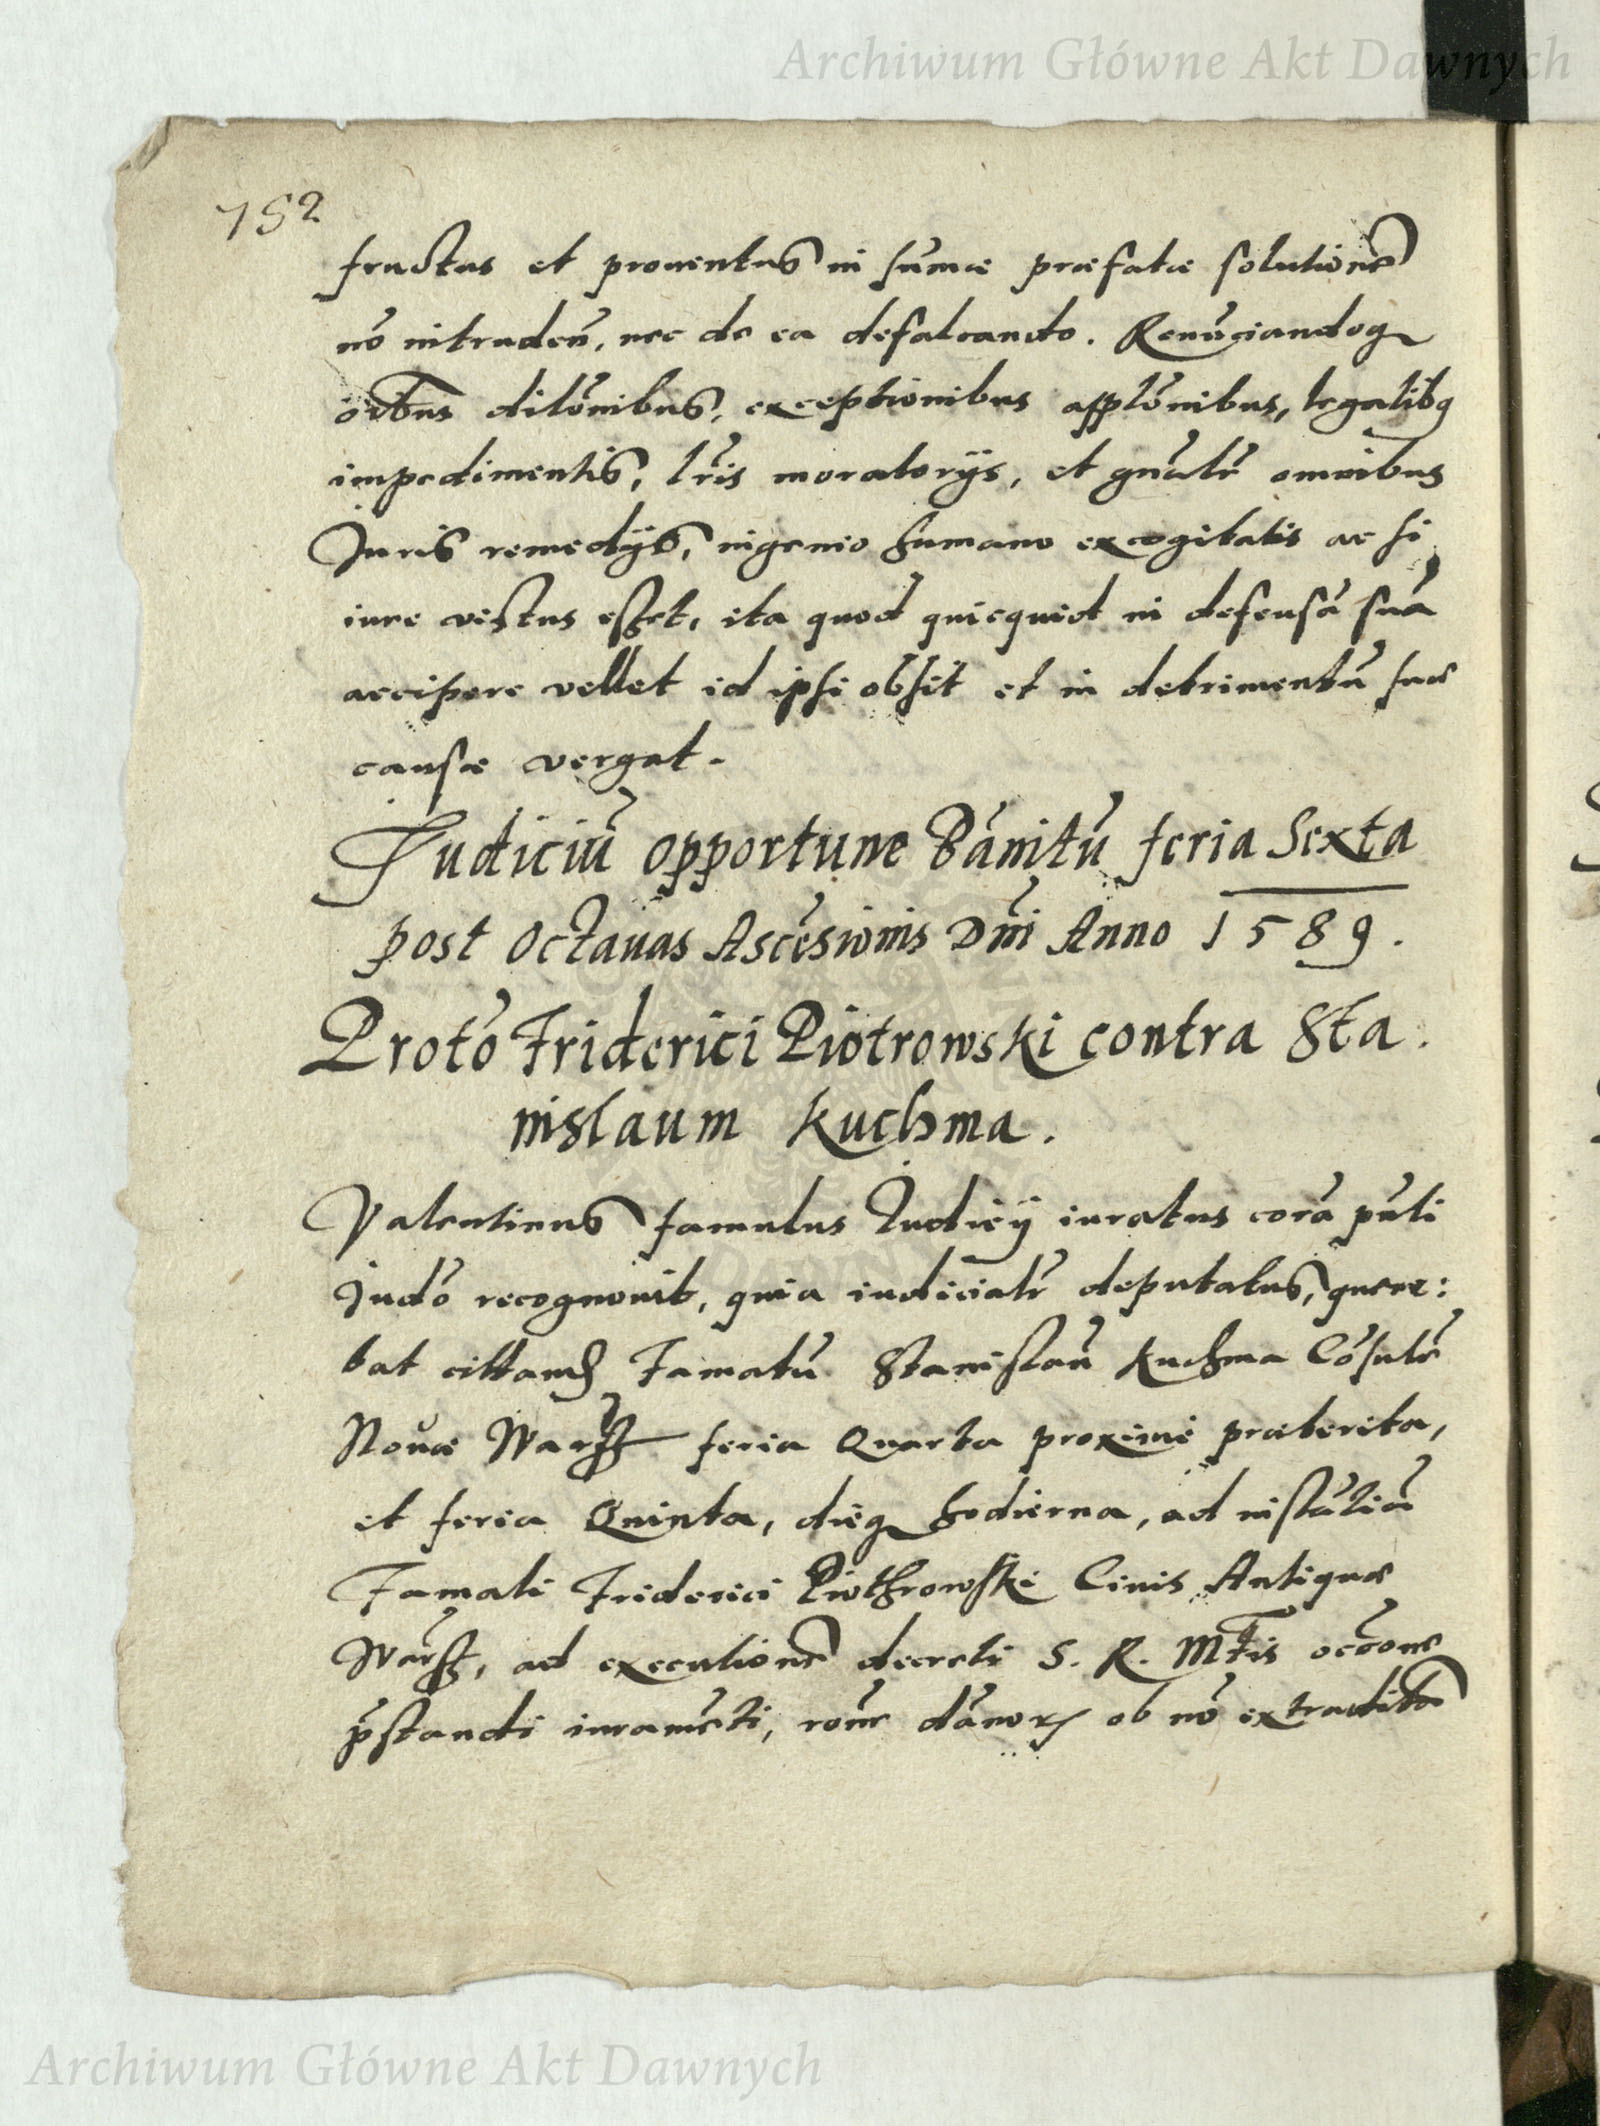 Archiwum Główne Akt Dawnych
752
fructus et prouentus in sum̄æ præfatæ solutionē
nō intruden̄, nec de ea defalcando. Renūciandoq
oībus dilōnibus, exceptionibus applōnibus, legalibq
impedimentis, lr̄is moratorijs, et gn̄alr̄ omnibus
Juris remedijs, ingenio humano excogitatis ac si
iure victus esset, ita quod quicquid in defensā suā
accipere vellet id ipsi obsit et in detrimentū suæ
causæ vergat.
Judiciū opportune Bānitū feria Sexta
post Octauas Ascēsionis Dn̄i Anno 1589.
Protō Friderici Piotrowski contra Sta.
nislaum Kuchma.
Valentinus famulus Judicij iuratus corā pn̄ti
Judō recognouit, quia iudicialr̄ deputatus,
bat Famatū Stanislaū Kuchma Cōsulē
Nouæ Warss feria Quarta proxime præterita,
et feria Quinta, dieq hodierna, ad instātiā
Famati Friderici Piothrowski Ciuis Antiquæ
Warss, ad executionē decreti S. R. Mt̄is occōne
p̄standi iuramēti, rōne dām̄oꝝ ob nō extraditā
Archiwum Główne Akt Dawnych